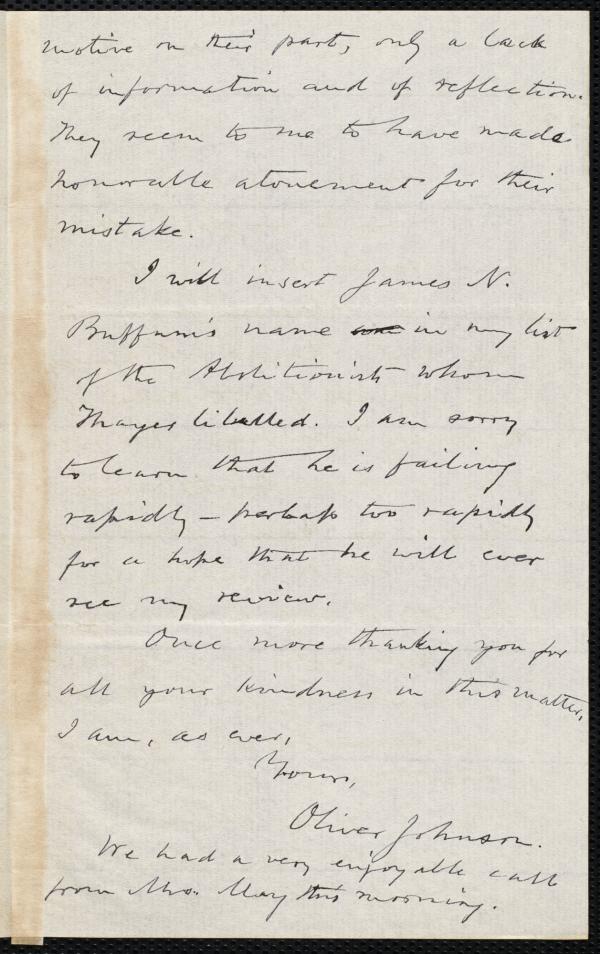 motive on their part, only a lack
of information and of reflection.
They seem to me to have made
honorable atonement for their
mistake.
I will insert James N.
Buffum's name in my list
of the Abolitionists whom
Thayer libelled. I am sorry
to learn that he is failing
rapidly — perhaps too rapidly
for a hope that he will ever
see my review.
Once more thanking you for
all your kindness in this matter,
I am, as ever,
Yours,
Oliver Johnson.
We had a very enjoyable call
from Mrs. May this morning.